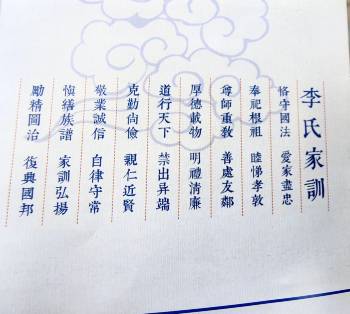 李氏家訓
恪守國法 愛家盡忠
奉祀根祖 睦悌孝敦
尊師重教 善處友鄰
厚德載物 明禮清廉
道行天下 禁出异端
克勤尚儉 親仁近賢
敬業誠信 自律守常
慎繕族譜 家訓弘揚
勵精圖治 復興國邦